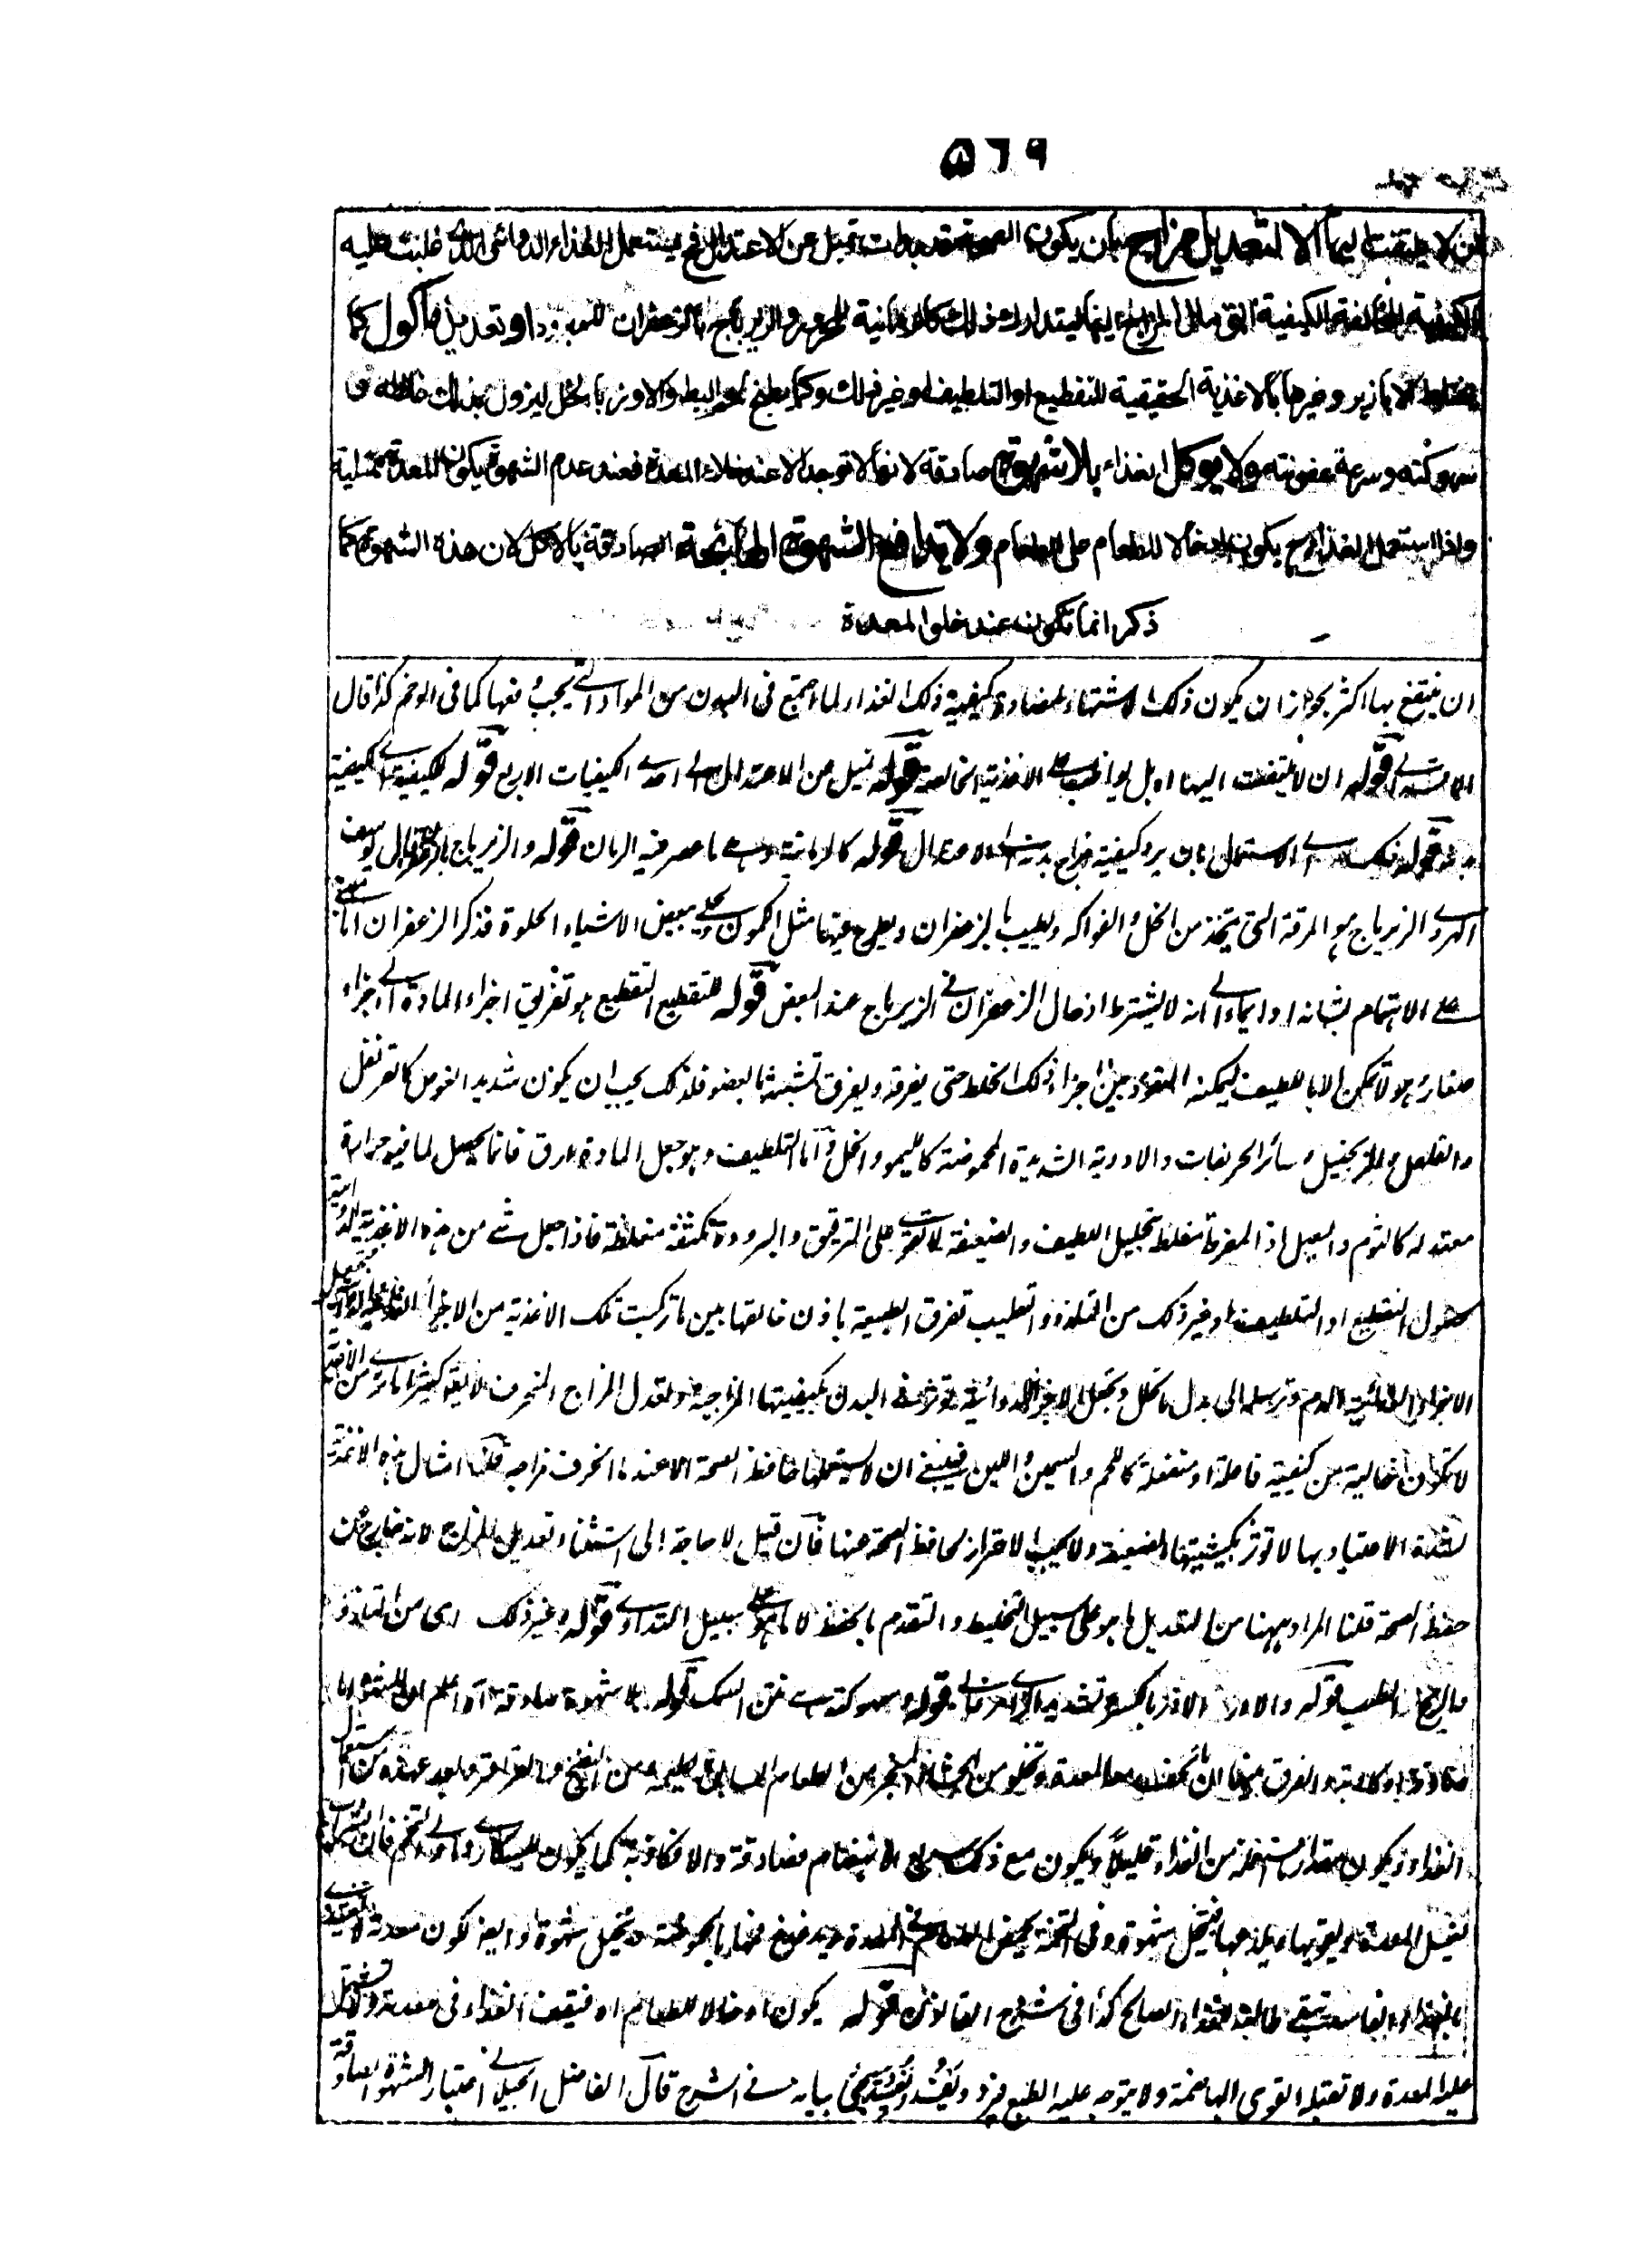 ٥٦٩
لا يلتفت اليها الا لتعديل مزاج بان يكون الصحة قد بدات تميل عن الاعتدال فح يستعمل الغذاء الدوائى الذى غلبت عليه
الكيفية المخالفة للكيفية التى مال المزاج اليها ليتدارك ذلك كالرمانية للمحرور والزيرباج بالزعفران للمبرود او تعديل ماكول كما
يخلط الابازير وغيرها بالاغذية الحقيقية للتقطيع او التلطيف او غير ذلك وكما يطبخ لحم البط والاوز بالخل ليزول بذلك غلظه و
سهوكته وسرعة عفونته ولا يوكل الغذاء بلا شهوة صادقة لانها لا توجد الا عند خلاء المعدة فعند عدم الشهوة يكون المعدة ممتلية
واذا استعمل الغذاء ح يكون ادخالا للطعام على الطعام ولا يدافع الشهوة الهائجة الصادقة بالاكل لان هذه الشهوة كما
ذكر انما تكون عند خلو المعدة
ان ينتفع بها اكثر بجواز ان يكون ذلك الاشتهاء لمضادة كيفية ذلك الغذاء لما اجتمع فى البدن من المواد التى يجب دفعها كما فى الوخم كذا قال
قوله ان لا يلتفت اليها اه بل يواظب على الاغذية الخالصة قوله تميل عن الاعتدال اى الى احدى الكيفيات الاربع قوله للكيفية اى الكيفية
قوله ذلك اى الاستعمال بان يرد كيفية مزاج بدنه الى الاعتدال قوله كالرمانية وهى ما عصر فيه الرمان قوله والزيرباج بالزعفران قال يوسف
الهروى الزيرباج هو المرقة التى يتخذ من الخل والفواكه ويطيب بالزعفران ويطرح فيها مثل الكمون ويحلى ببعض الاشياء الحلوة فذكر الزعفران اما مبنى
على الاهتمام بشانه او ايماء الى انه لا يشترط ادخال الزعفران فى الزيرباج عند البعض قوله للتقطيع التقطيع هو تفريق اجزاء المادة الى اجزاء
صغار وهو لا يمكن الا بالطيف ليمكنه النفوذ بين اجزاء ذلك الخلط حتى يفرقه ويفرق تشبثه بالعضو فلذلك يجب ان يكون شديد الغوص كالقرنفل
والفلفل والزنجبيل وسائر الحريفات والادوية الشديدة الحموضة كالليمو والخل واما التلطيف وهو جعل المادة ارق فانما يحصل لما فيه حرارة
معتدلة كالثوم والبصل اذ المفرطة مغلظة بتحليل اللطيف والضعيفة لا تقوى على الترقيق والبرودة مكثفة مغلظة فاذا جعل شئ من هذه الاغذية الدوائية
لحصول التقطيع او التلطيف او غير ذلك من التلذذ والتطييب تفرق الطبيعة باذن خالقها بين ما تركبت تلك الاغذية من الاجزاء الغذائية والدوائية فتجعل
الاجزاء الغذائية الدم وترسله الى بدل ما يتحلل وتجعل الاجزاء الدوائية مؤثرة فى البدن بكيفيتها المزاجية وتعدل المزاج المنحرف
لا تكون خالية من كيفية فاعلة او منفعلة كاللحم والسمين واللبن فينبغى ان لا يستعملها حافظ الصحة الا عند ما انحرف مزاجه قلنا امثال هذه الاغذية
لشدة الاعتياد بها لا تؤثر بكيفيتها الضعيفة ولا يجب الاحتراز لحافظ الصحة عنها فان قيل لا حاجة الى استثناء تعديل المزاج لانه خارج عن
حفظ الصحة قلنا المراد ههنا من التعديل ما هو على سبيل التخليط والتقدم بالحفظ لا ما هو على سبيل التداوى قوله وغير ذلك اى من التلذذ
التطييب قوله والاوز الاوز بالكسر وتشديد الزاى قوله وسهوكته هى نتن السمك قوله بلا شهوة صادقة آه اعلم ان الشهوة اما
صادقة او كاذبة والفرق بينهما ان من الطعام السابق من النفخ والقراقر وبعد عهده من
الغذاء ويكون مقدار ما يستعمله من الغذاء قليلا ويكون مع ذلك سريع الانهضام فصادقة والا فكاذبة كما يكون للسكارى واولى التخم فان
تغسل المعدة وفى التخمة يحمض الطعام فى المعدة ويدغدغ فمها بالحموضة ويخيل شهوة وايضا لكون معدته
بالغذاء الفاسد تبقى طالبة للغذاء الصالح كذا فى شروح القانون قوله يكون ادخالا للطعام اه فيقف الغذاء فى معدته ولا يشتمل
عليه المعدة ولا تقبله القوى الهاضمة ولا يتوجه عليه الطبع فيرد ويفسد ويفسد سيجئ بيانه فى الشرح قال الفاضل الجيلانى اعتبار الشهوة الصادقة